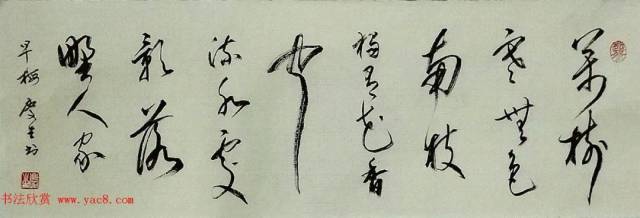 萬樹
寒無色
南枝
獨有花香
聞
流水處
影落
野人家
早梅
书法欣赏
www.yac8.com